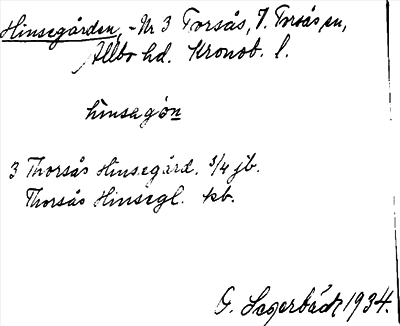 Hinsegården, - Nr 3 Torsås, 7. Torsås sn,
Allbo hd. Kronob. l.
hinsagón
3 Thorsås Hinsegård. 3/4 jb.
Thorsås Hinsegl. kb.
G. Lagerbäck 1934.